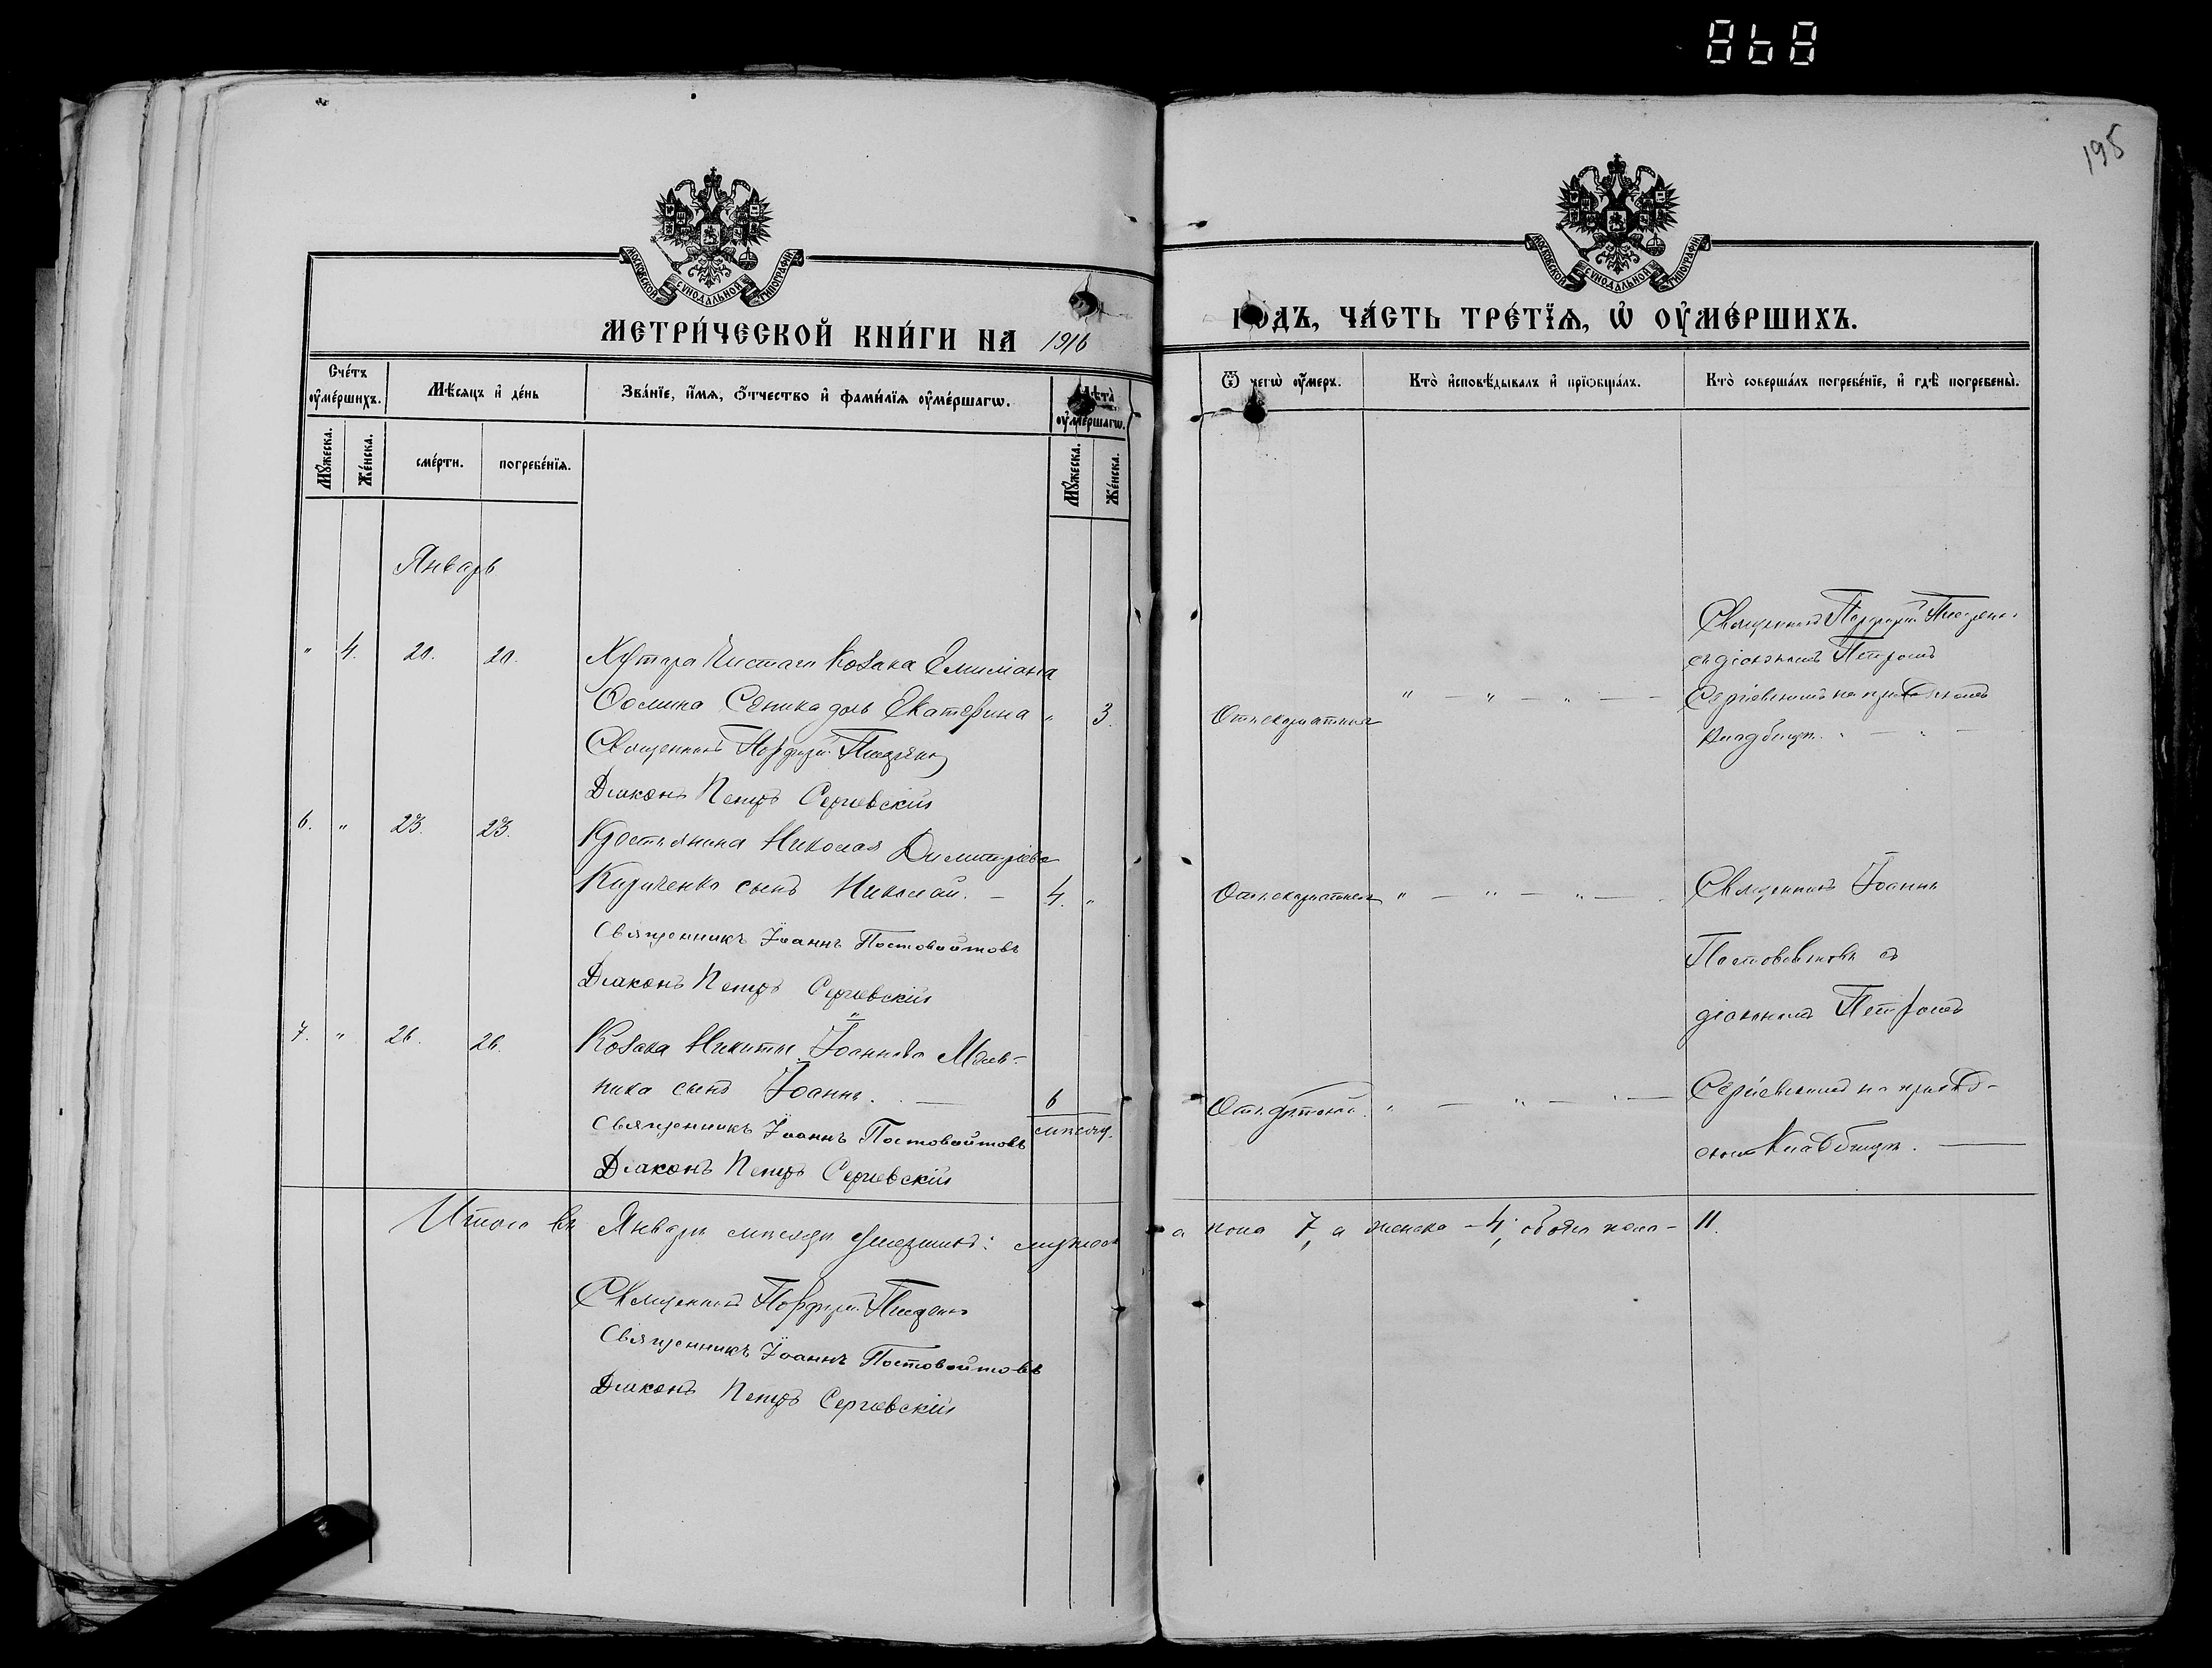 868
195
МОСКОВСКОЙ СѴНОДАЛЬНОЙ ТИПОГРАФІИ
МЕТРИ́ЧЕСКОЙ КНИ́ГИ НА 1916
Сче́тъ ᲂу҆ме́ршихъ.
Мѣ́сяцъ и҆ де́нь
Зва́нїе, и҆́мѧ, ѻ҆́тчество и҆ фами́лїѧ ᲂу҆ме́ршагѡ.
Лѣ́та ᲂу҆ме́ршагѡ.
Мꙋ́жеска.
Же́нска.
сме́рти.
погребе́нїѧ.
Мꙋ́жеска.
Же́нска.
Январь
" 4. 20. 20. Хутора Чистаго Козака Емиліана
Ѳомина Сеника дочь Екатерина " 3.
Священникъ Порфирій
Діаконъ Петръ Сергіевскій
6. " 23. 23. Крестьянина Николая Димитріева
Кириченко сынъ Николай. — 4. "
Священникъ Іоаннъ Постовойтовъ
Діаконъ Петръ Сергіевскій
7. " 26. 26. Козака Никиты Іоаннова Мель-
ника сынъ Іоаннъ. — 6
Священникъ Іоаннъ Постовойтовъ мѣсяц.
Діаконъ Петръ Сергіевскій
Итого въ Январѣ мѣсяцѣ умершихъ: мужеск
Священникъ Порфирій
Священникъ Іоаннъ Постовойтовъ
Діаконъ Петръ Сергіевскій
МОСКОВСКОЙ СѴНОДАЛЬНОЙ ТИПОГРАФІИ
ГО́ДЪ, ЧА́СТЬ ТРЕ́ТЇѦ, Ѡ҆ ОУ҆МЕ́РШИХЪ.
Ѿ чегѡ̀ ᲂу҆́меръ.
Кто̀ и҆сповѣ́дывалъ и҆ прїѡбща́лъ.
Кто̀ соверша́лъ погребе́нїе, и҆ гдѣ̀ погребены̀.
Священникъ Порфирій
съ діакономъ Петромъ
Отъ скарлатины " — " — " — Сергіевскимъ на приходскомъ
кладбищѣ. " — " —
Отъ скарлатины " — " — " — Священникъ Іоаннъ
Постовойтовъ съ
діакономъ Петромъ
Отъ " — " — " — Сергіевскимъ на приход-
скомъ кладбищѣ. —
а пола 7, а женска – 4; обоего пола – 11.